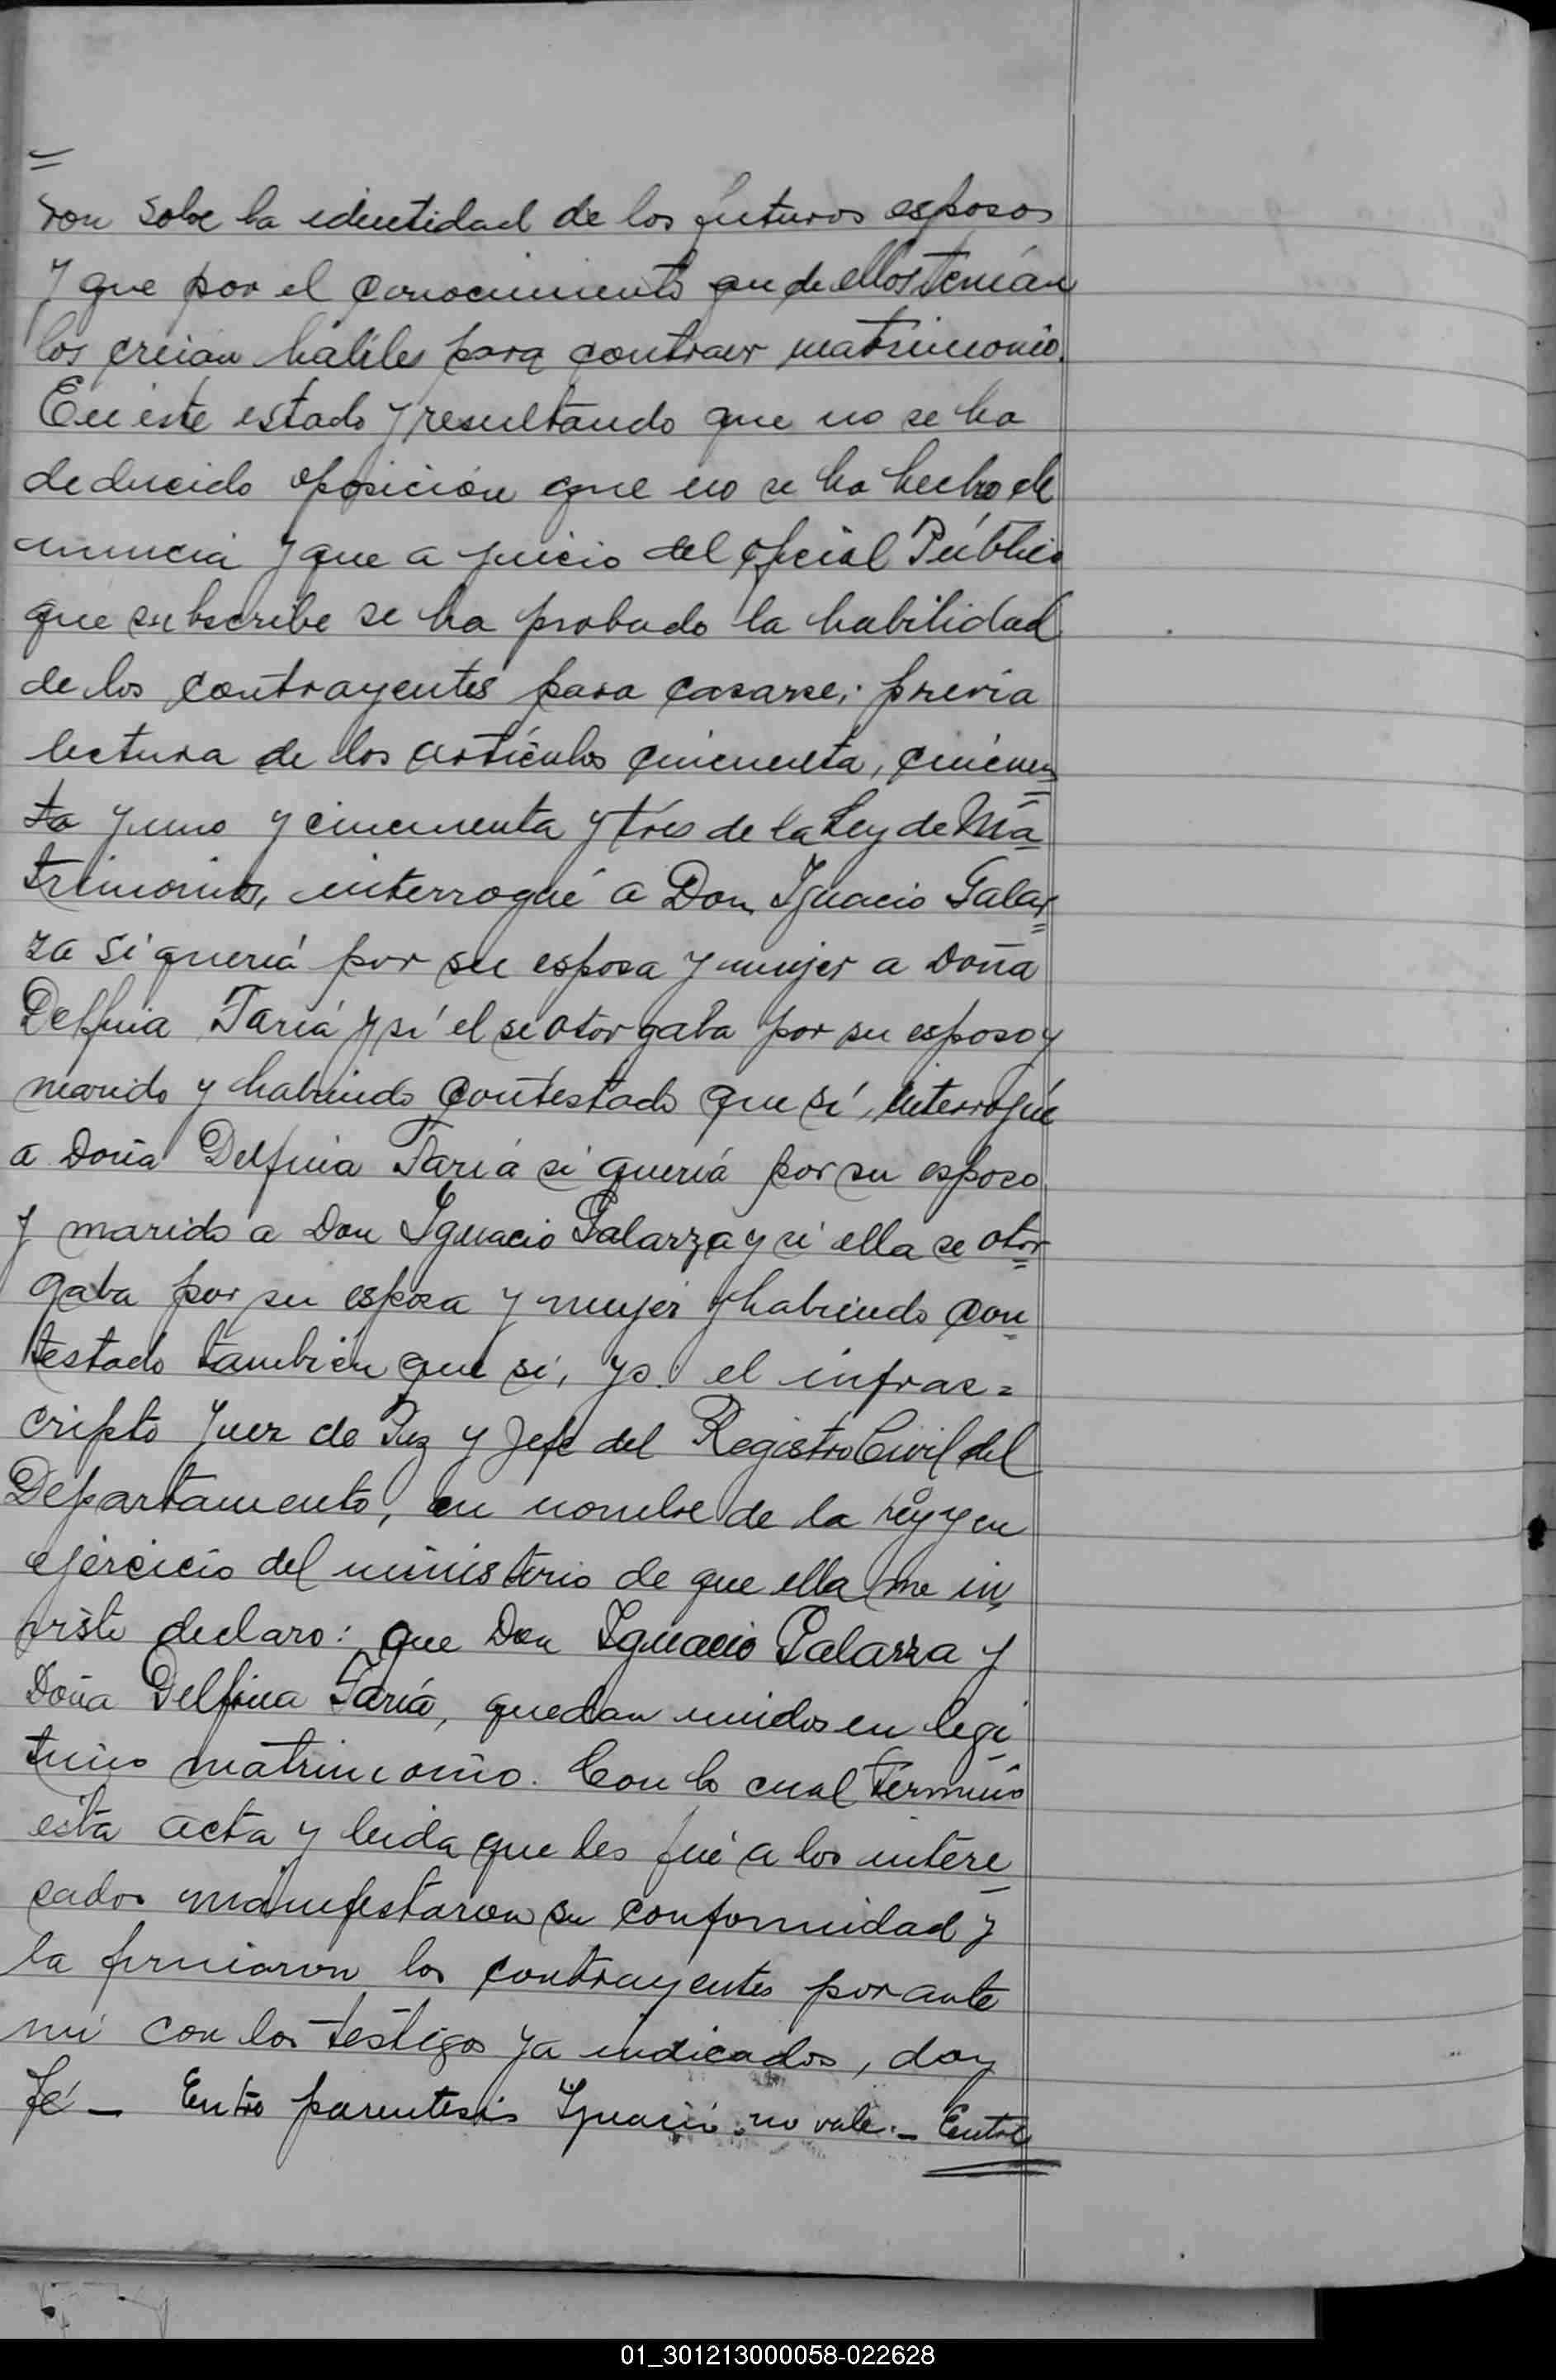 =
ron sobre la identidad de los futuros esposos
y que por el conocimiento que de ellos tenían
los creían hábiles para contraer matrimonio.
En este estado y resultando que no se ha
deducido oposición que no se ha hecho de
nuncia y que a juicio del oficial Público
que subscribe se ha probado la habilidad
de los contrayentes para casarse; previa
lectura de los artículos cincuenta, cincuen=
ta y uno y cincuenta y tres de la Ley de Ma=
trimonios, interrogué a Don Ignacio Galar=
za si quería por su esposa y mujer a Doña
Delfina Faría y si el se otorgaba por su esposo y
marido y habiendo contestado que sí, interrogué
a Doña Delfina Faría si quería por su esposo
y marido a Don Ignacio Galarza y si ella se otor=
gaba por su esposa y mujer y habiendo con=
testado también que sí, yo el infras=
cripto Juez de Paz y Jefe del Registro Civil del
Departamento, en nombre de la ley y en
ejercicio del ministerio de que ella me in
viste declaro: que Don Ignacio Galarza y
Doña Delfina Faría, quedan unidos en legí
timo matrimonio. Con lo cual terminó
esta acta y leida que les fué a los intere
sados manifestaron su conformidad y
la firmaron los contrayentes por ante
mí con los testigos ya indicados, doy
fé — Entre parentesis Ignacio no vale. — Entre
01_301213000058-022628